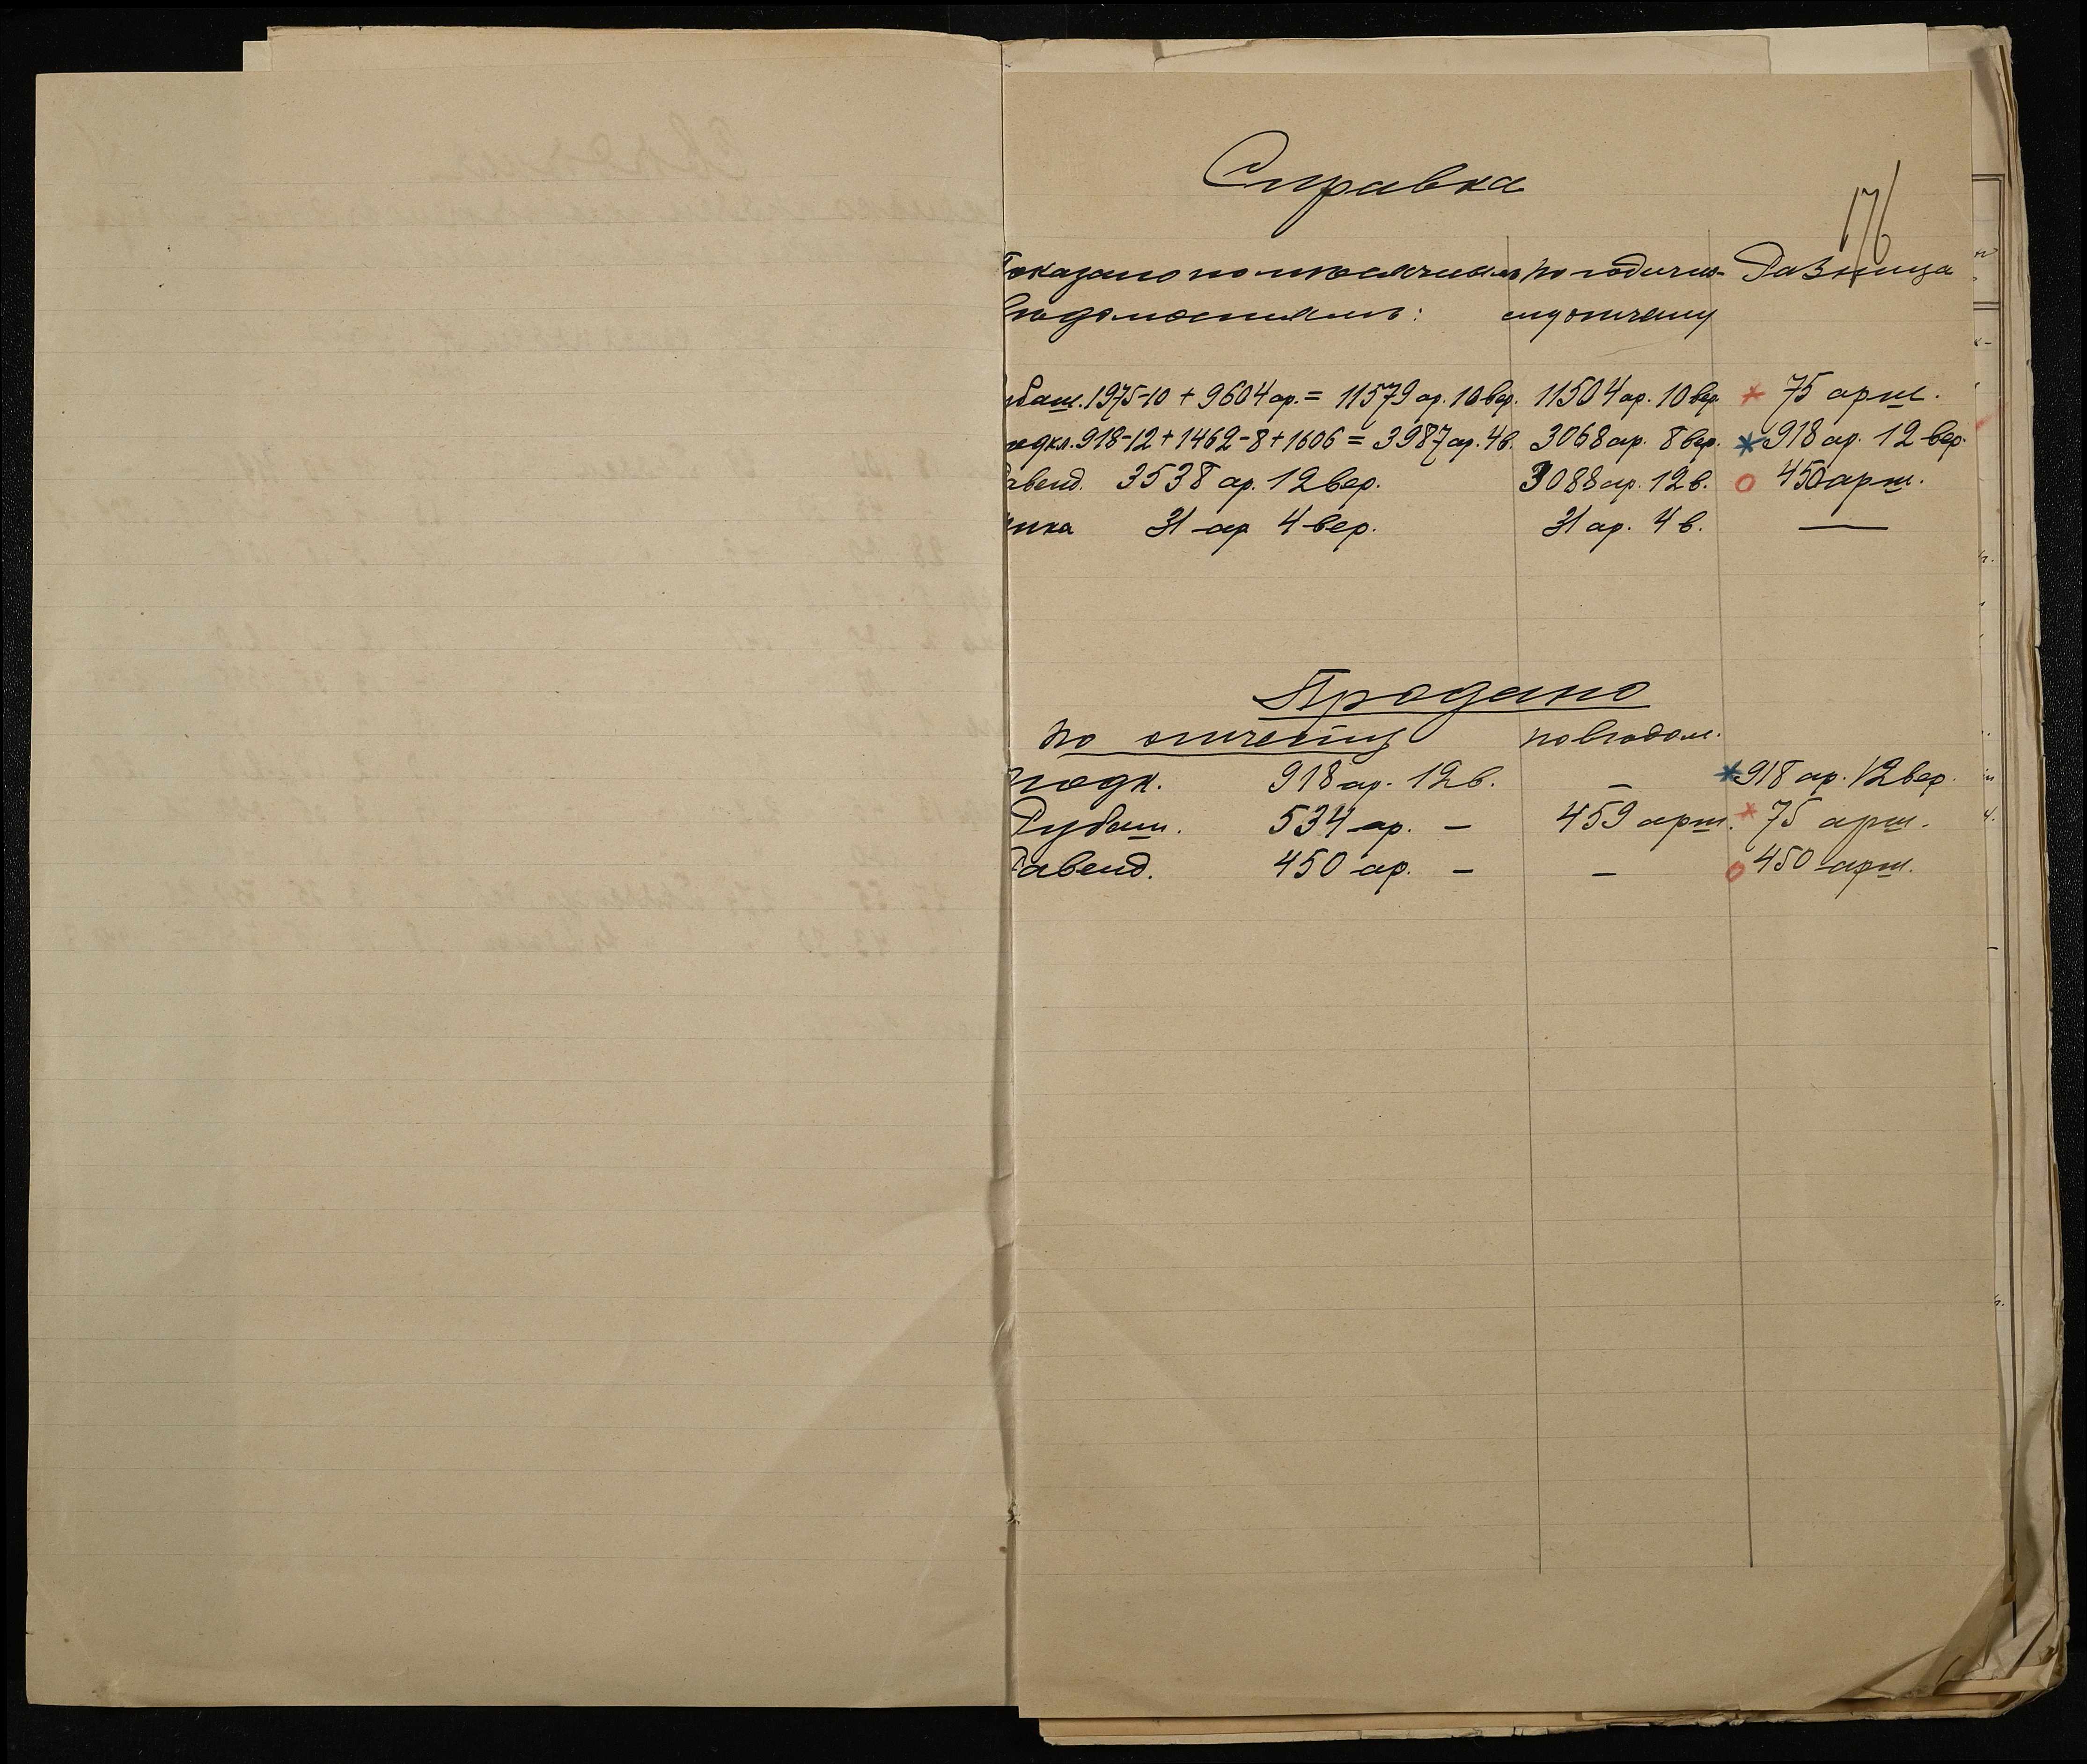 Справка
176
Показано по месячнымъ по годично- Разница
Ведомостямъ: му отчету
убаш. 1975-10 + 9604 ар. = 11579 ар. 10 вер. 11504 ар. 10 вер. * 75 арш.
подкл. 918-12 + 1462-8 + 1606 = 3987 ар. 4 в. 3068 ар. 8 вер. * 918 ар. 12 вер.
авенд. 3538 ар. 12 вер. 3088 ар. 12 в. о 450 арш.
ика 31 ар 4 вер. 31 ар. 4 в. —
Продано
по отчету по ведом.
подк. 918 ар. 12 в. — * 918 ар. 12 вер.
Рубаш. 534 ар. — 459 арш. * 75 арш.
Равенд. 450 ар. — — о 450 арш.